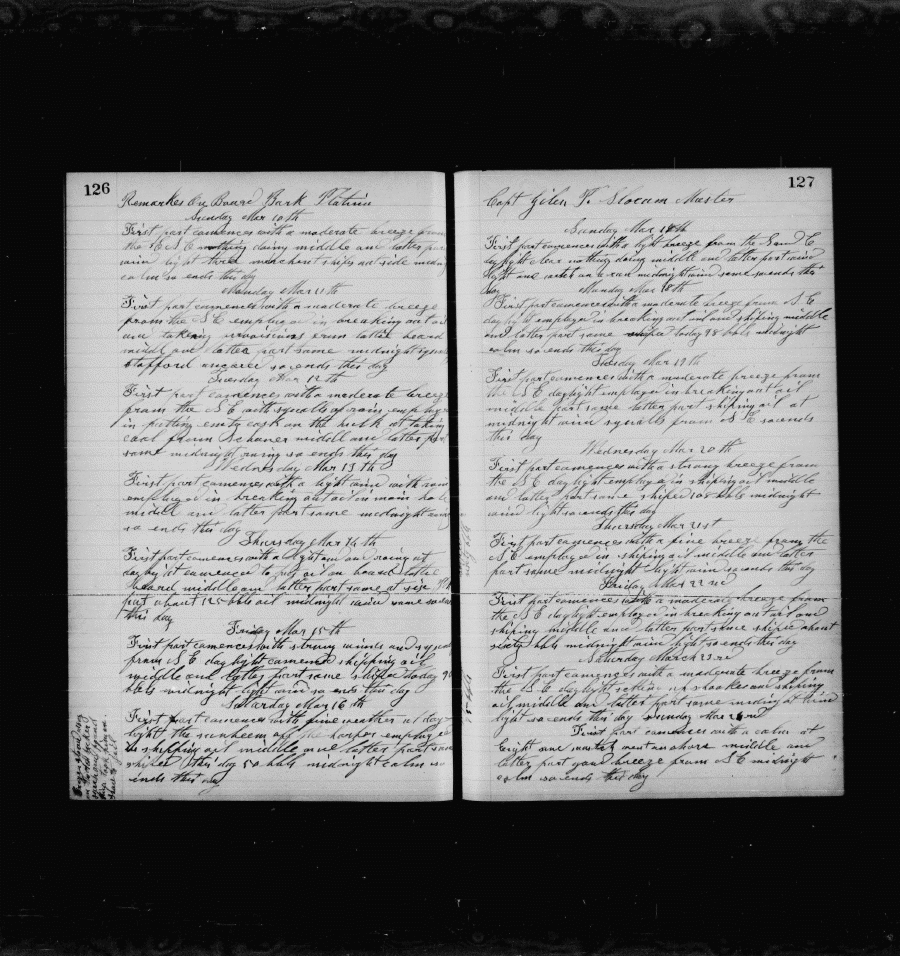 126
Remarkes On Board Bark Platina
Sunday Mar 10th
First part comences with a moderate breeze from
the S E nothing doing middle and latter part
wind light three merchant ships outside
calm so ends this day
Monday Mar 11th
First part comences with a moderate breeze
from the S E employed in breaking out oil
and taking provisions from
middle and latter part same midnight
Stafford so ends this day
Tuesday Mar 12th
First part comences with a moderate breeze
from the S E with squalls of rain employed
in putting emty cask on the hulk at taking
coal from Schuner middle and latter part
same midnight raing so ends this day
Wednesday Mar 13th
First part comences with a light wind with rain
employed in breaking out oil in main hole
middle and latter part same midnight
so ends this day
Thursday Mar 14th
First part comences with a light wind and raing at
daylight comenced to put oil on board
board middle and latter part same at six
put about 125 bbls oil midnight wind same so ends
this day
Friday Mar 15th
First part comences with strong winds and squalls
from S E daylight comenced shipping oil
middle and latter part same shipted today 90
bbls midnight light wind so ends this day
Saturday Mar 16th
First part comences with fine weather at day
light the off the harbor employed
in shipping oil middle and latter part same
shiped this day 50 bbls midnight calm so
ends this day
127
Capt Slocum Master
Sunday Mar 17th
First part comences with a light breeze from the S and E
daylight clear nothing doing middle and latter part wind
light and midnight wind same so ends this
day
Monday Mar 18th
First part comences with a moderate breeze from S E
daylight employed in breaking out oil and shiping middle
and latter part same shiped today 98 bbls midnight
calm so ends this day
Tuesday Mar 19th
First part comences with a moderate breeze from
the S E daylight employed in breaking out oil
middle part same latter part shiping oil at
midnight wind squalls from S E so ends
this day
Wednesday Mar 20th
First part comences with a strong breeze from
the S E day light employed in shiping oil middle
and latter part same shiped 108 bbls midnight
wind light so ends this day
Thursday Mar 21st
First part comences with a fine breeze from the
S E employed in shiping oil middle and latter
part same midnight light wind so ends this day
Friday Mar 22nd
First part comences with a moderate breeze from
the S E daylight employed in breaking out oil and
shiping middle and latter part same shiped about
sixty bbls midnight wind light so ends this day
Saturday March 23rd
First part comences with a moderate breeze from
the S E daylight up shooks and shiping
oil middle and latter part same midnight wind
light so ends this day Sunday Mar
First part comences with a calm at
and went on shore middle and
latter part good breeze from S E midnight
calm so ends this day